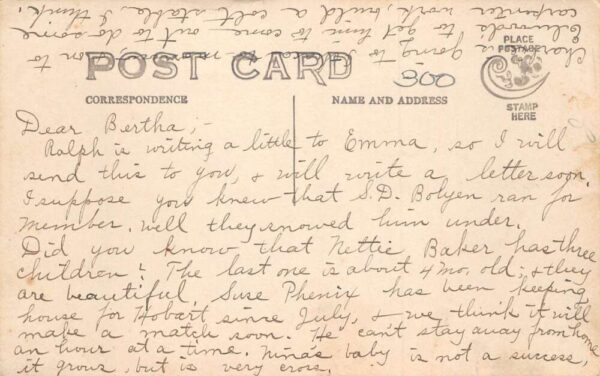 Charlie is going to Havana tomorrow, on to
Edwards to get him to come out to do some
carpenter work, build a colt stable, I think.
POST CARD
300
PLACE
POSTAGE
STAMP
HERE
CORRESPONDENCE
NAME AND ADDRESS
Dear Bertha;-
Ralph is writing a little to Emma, so I will
send this to you, & will write a letter soon.
I suppose you knew that S.D. Bolyen ran for
member. well they snowed him under.
Did you know that Nettie Baker has three
children? The last one is about 4 mo. old, & they
are beautiful. Suse Phenix has been keeping
house for Hobart since July, & we think it will
make a match soon. He can't stay away from home
an hour at a time. Nina's baby is not a success,
it grows, but is very cross.